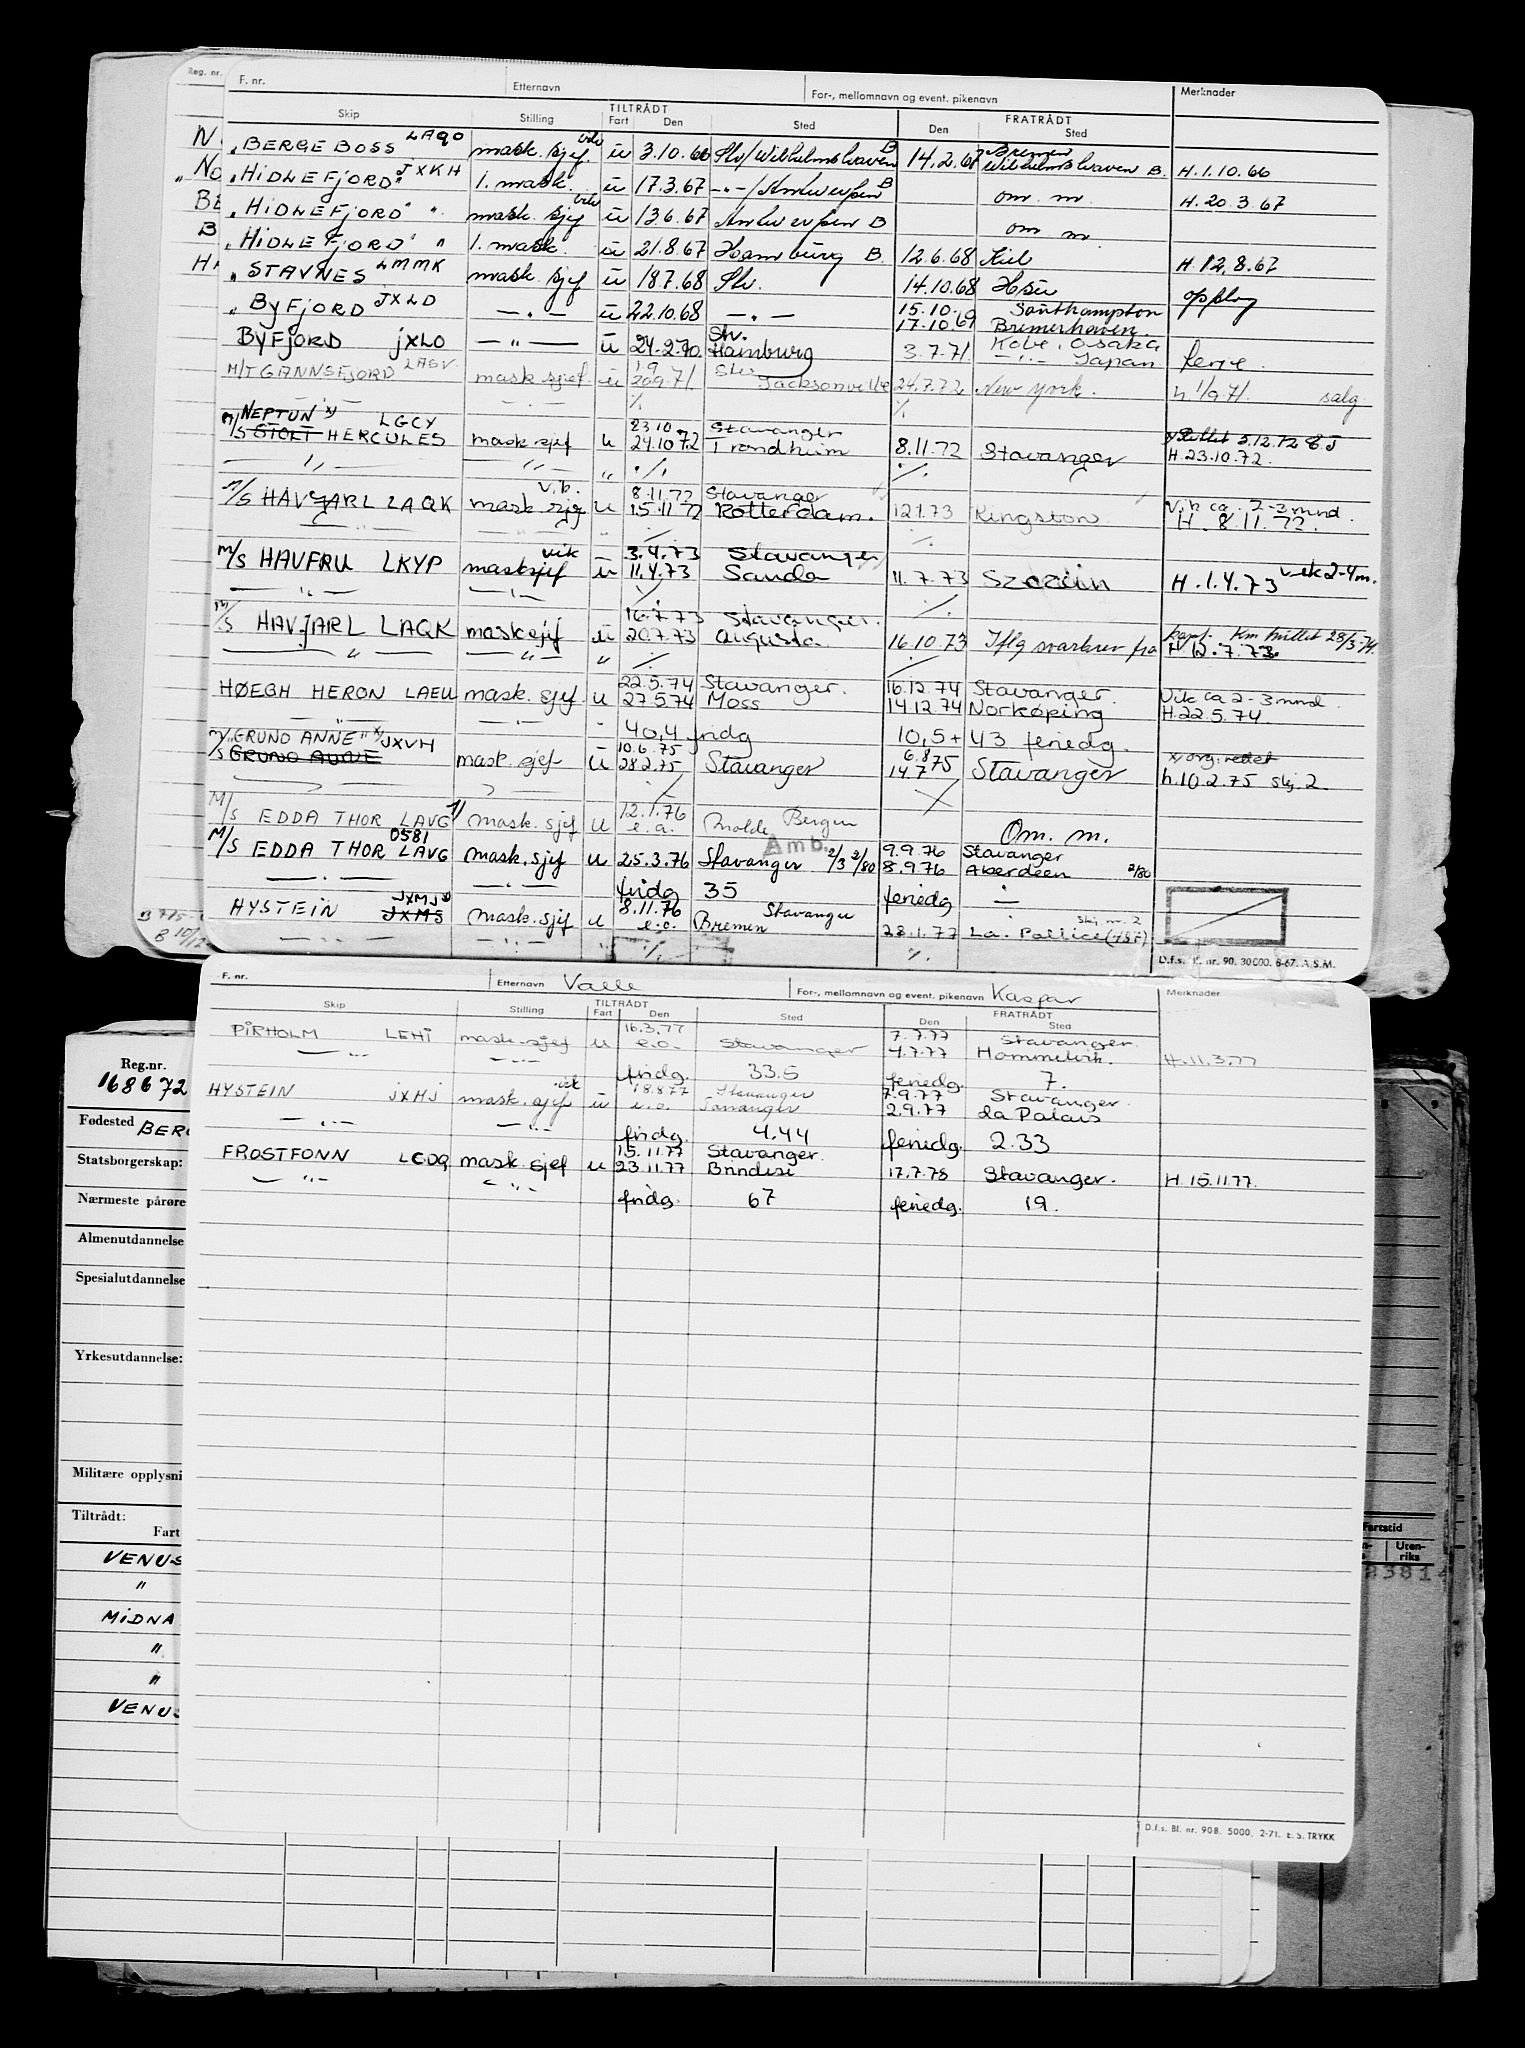 Reg. nr.
F. nr. Etternavn For-, mellomnavn og event. pikenavn Merknader
TILTRÅDT FRATRÅDT
Skip Stilling Fart Den Sted Den Sted
"BERGE BOSS LAQO mask. sjef. vik u 3.10.66 Slv/Wilhelmshaven B 14.2.67 Bremen Wilhelmshaven B. H.1.10.66
"HIDLEFJORD" JXKH 1. mask. u 17.3.67 -"-/Antwerpen B om. m. H. 20.3.67
"HIDLEFJORD" " mask. sjef vik u 13.6.67 Antwerpen B om m.
"HIDLEFJORD" " 1. mask. u 21.8.67 Hamburg B. 12.6.68 Kiel H. 12.8.67
"STAVNES LMMK mask. sjef u 18.7.68 Slv. 14.10.68 opplag
"BYFJORD JXLO -"- u 22.10.68 -"- 15.10. 17.10.69 Southampton Bremerhaven.
BYFJORD JXLO -"- u 24.2.70. Slv. Hamburg 3.7.71 Kobe, Osaka -"- Japan ferie.
M/T GANNSFJORD LAGV mask sjef u 1.9 20.9.71. Slv Jacksonville 24.7.72 New York. h 1/9 71. salg
-"- ./. ./.
M/S NEPTUN x) STOLT HERCULES LGCY mask sjef u 23.10 24.10.72 Stavanger Trondheim 8.11.72 Stavanger x) Rettet 5.12.72 H.23.10.72.
-"- -"- " ./. ./.
M/S HAVJARL LAQK mask sjef v.k. u 8.11.72 15.11.72 Stavanger Rotterdam. 12.1.73 Kingston Vik ca. 2-3 mnd. H. 8.11.72.
M/S HAVFRU LKYP masksjef vik u 3.4.73 11.4.73 Stavanger Sauda 11.7.73 Szczecin H.1.4.73 vik 2-4 m.
-"- -"- ./. ./.
M/S HAVJARL LAQK masksjef u 16.7.73 20.7.73 Stavanger. Augusta. 16.10.73 Iflg svarbrev fra kapt. Km hullet 28/3-74. H 12.7.73
-"- -"- " ./. ./.
HØEGH HERON LAEU mask. sjef. u 22.5.74 27.5.74 Stavanger. Moss 16.12.74 14.12.74 Stavanger. Norköping Vik ca 2-3 mnd H.22.5.74
-"- -"- - 40,4 fridg 10,5 + 43 feriedg.
M/S "GRUNO ANNE" x) JXVH mask. sjef u 10.6.75 28.2.75 Stavanger 6.8.75 14.7 Stavanger x) org. rettet h.10.2.75 skj. 2.
M/S EDDA THOR LAVG mask. sjef u 12.1.76 e.o. Molde Bergen Om. m.
Amb.
M/S EDDA THOR 0581 LAVG mask. sjef u 25.3.76 Stavanger 2/3 2/80 9.9.76 8.9.76 Stavanger Aberdeen 2/80
-"- -"- fridg 35 feriedg -
HYSTEIN JXMJ JXMS mask. sjef u 8.11.76 e.o. Stavanger Bremen 28.1.77 La. Pallice skj. nr. 2
-"- -"- " ./. ./.
D.f.s. K. nr. 90. 30000. 8-67. A.S.M.
F. nr. Etternavn Valle For-, mellomnavn og event. pikenavn Kaspar Merknader
TILTRÅDT FRATRÅDT
Skip Stilling Fart Den Sted Den Sted
PIRHOLM LEHI mask.sjef u 16.3.77 e.o. Stavanger 7.7.77 4.7.77 Stavanger. Hommelvik. H.11.3.77
-"- -"- fridg. 33.5 feriedg. 7.
HYSTEIN JXMJ mask. sjef vik u 18.8.77 e.o. Stavanger Tananger 7.9.77 2.9.77 Stavanger. La Palais
-"- -"- fridg. 4.44 feriedg. 2.33
FROSTFONN LCDQ mask sjef u 15.11.77 23.11.77 Stavanger. Brindisi 17.7.78 Stavanger. H 15.11.77.
-"- -"- fridg. 67 feriedg. 19.
D.f.s. Bl. nr. 908. 5000. 2-71. E.S. TRYKK
Reg.nr.
168672
Fødested BERG
Statsborgerskap:
Nærmeste pårøre
Almenutdannelse
Spesialutdannelse
Yrkesutdannelse:
Militære opplysni
Tiltrådt:
Fart
VENUS
"
MIDNA
"
"
VENUS
Fartstid
Uten-
riks